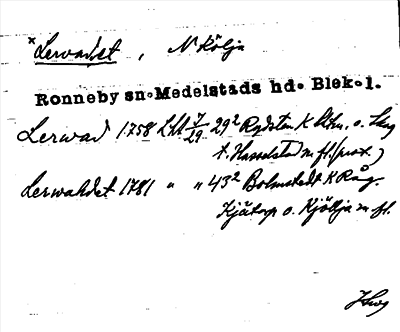 * Lervadet, N Kölja
Ronneby sn. Medelstads hd. Blek. l.
Lerwad 1758 Lht 7/29 29² Rydsten K o.
t. Hasselstad m fl. (prot.)
Lerwahdet 1781 " " 43² Bolmstedt K Råg.
Kjätorp o. Kjöllja m fl.